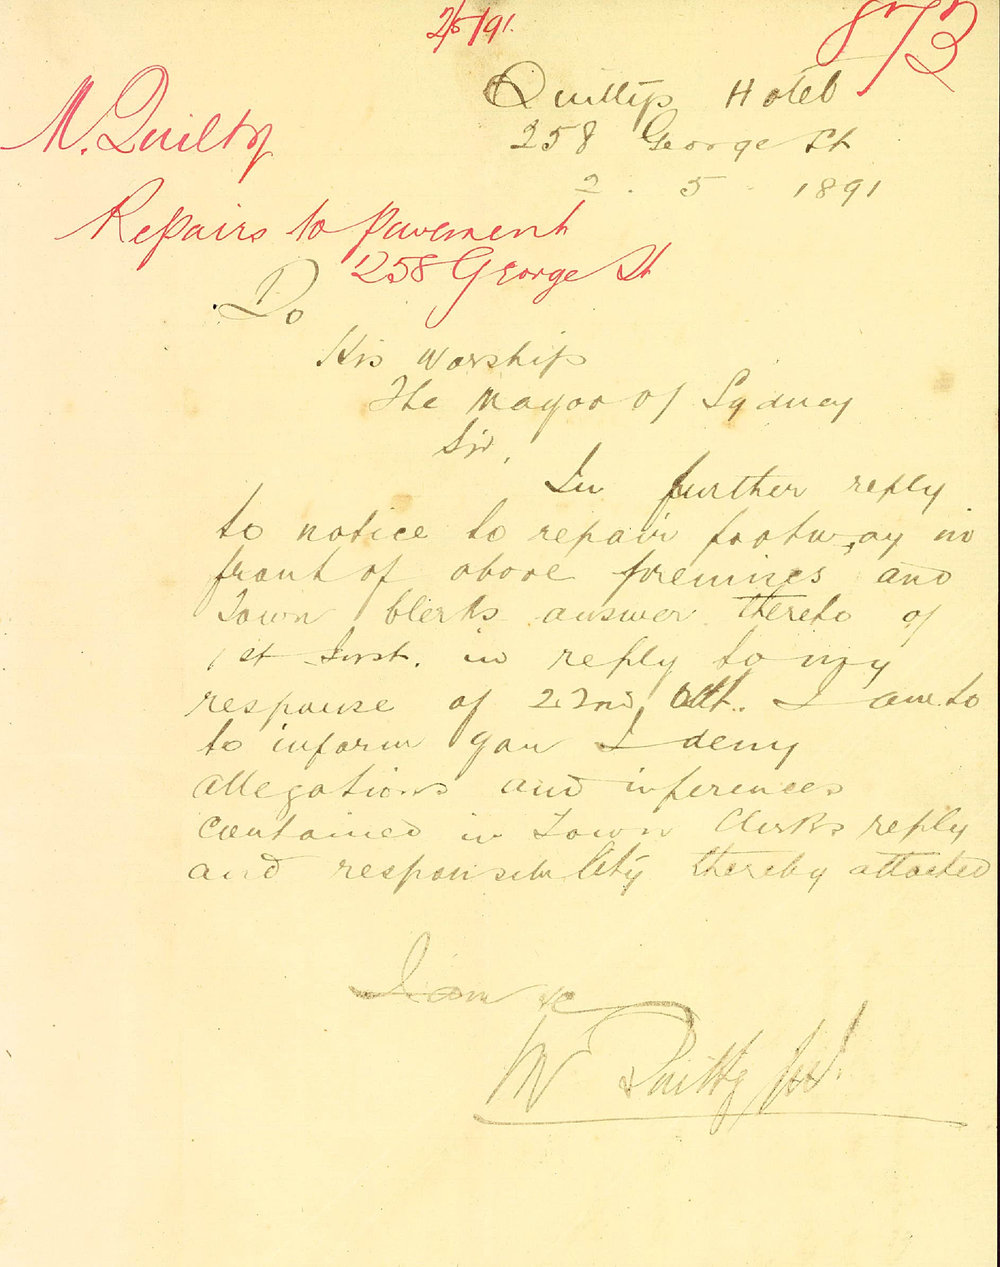 2/5/91.
873
Quiltys Hotel
258 George St
2 . 5 . 1891
M. Quilty
Repairs to pavement
258 George St
To
His Worship
The Mayor of Sydney
Sir,
In further reply
to notice to repair footway in
front of above premises and
Town Clerks answer thereto of
1st Inst. in reply to my
response of 22nd Ult. I am to
to inform you I deny
allegations and inferences
contained in Town Clerks reply
and responsibility thereby attached
I am &c
M Quilty